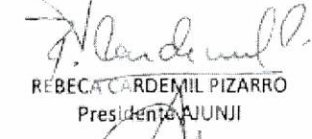 REBECA CARDEMIL PIZARRO
Presidente AJUNJI